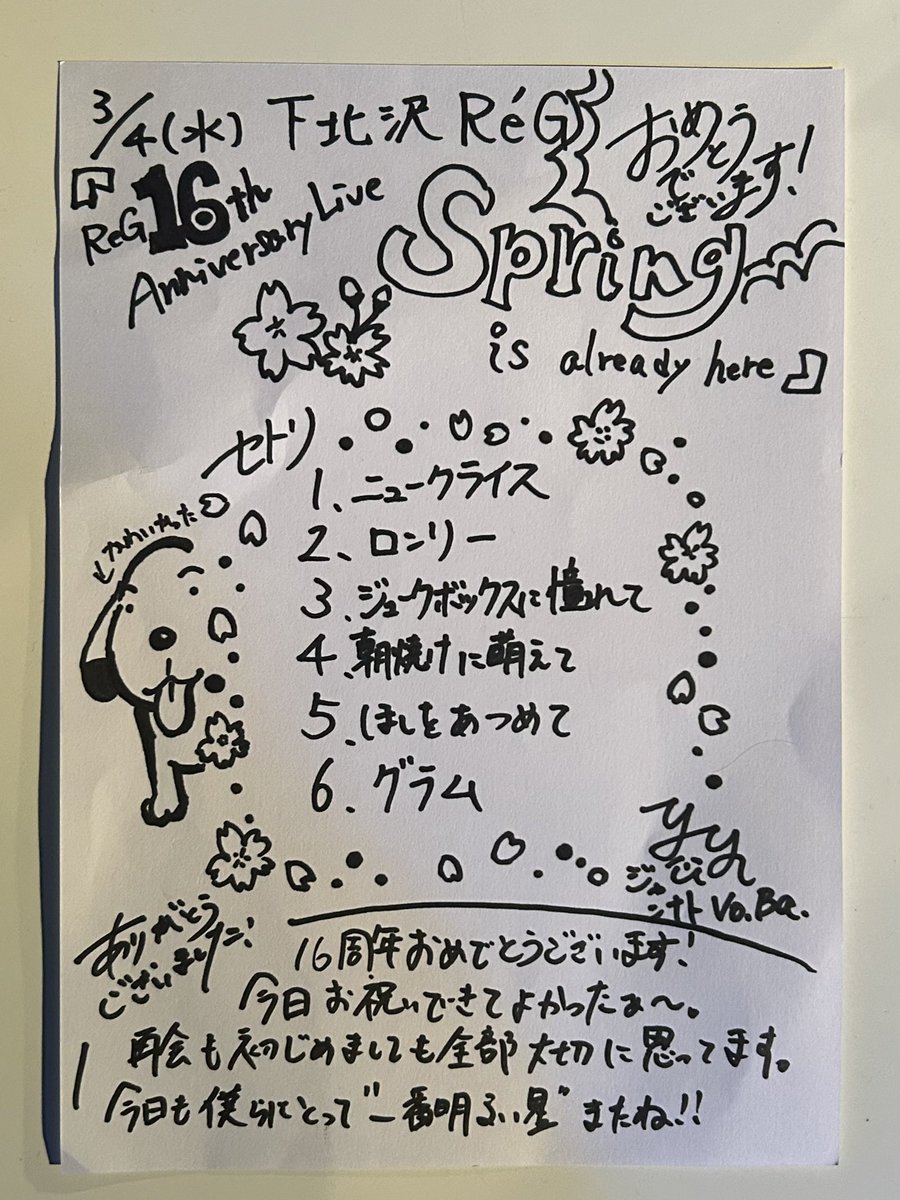 3/4(水) 下北沢 RéG
おめとう
でございます!
『ReG 16th
Anniversary Live
Spring
is already here』
セトリ
1、ニュークライス
2、ロンリー
3、ジュークボックスに憧れて
4、朝焼けに萌えて
5、ほしをあつめて
6、グラム
Vo.Ba.
ありがとう
ございました!
16周年おめでとうございます!
今日お祝いできてよかったぁ〜。
再会も初じめましても全部大切に思ってます。
今日も僕らにとって"一番明るい星"またね!!